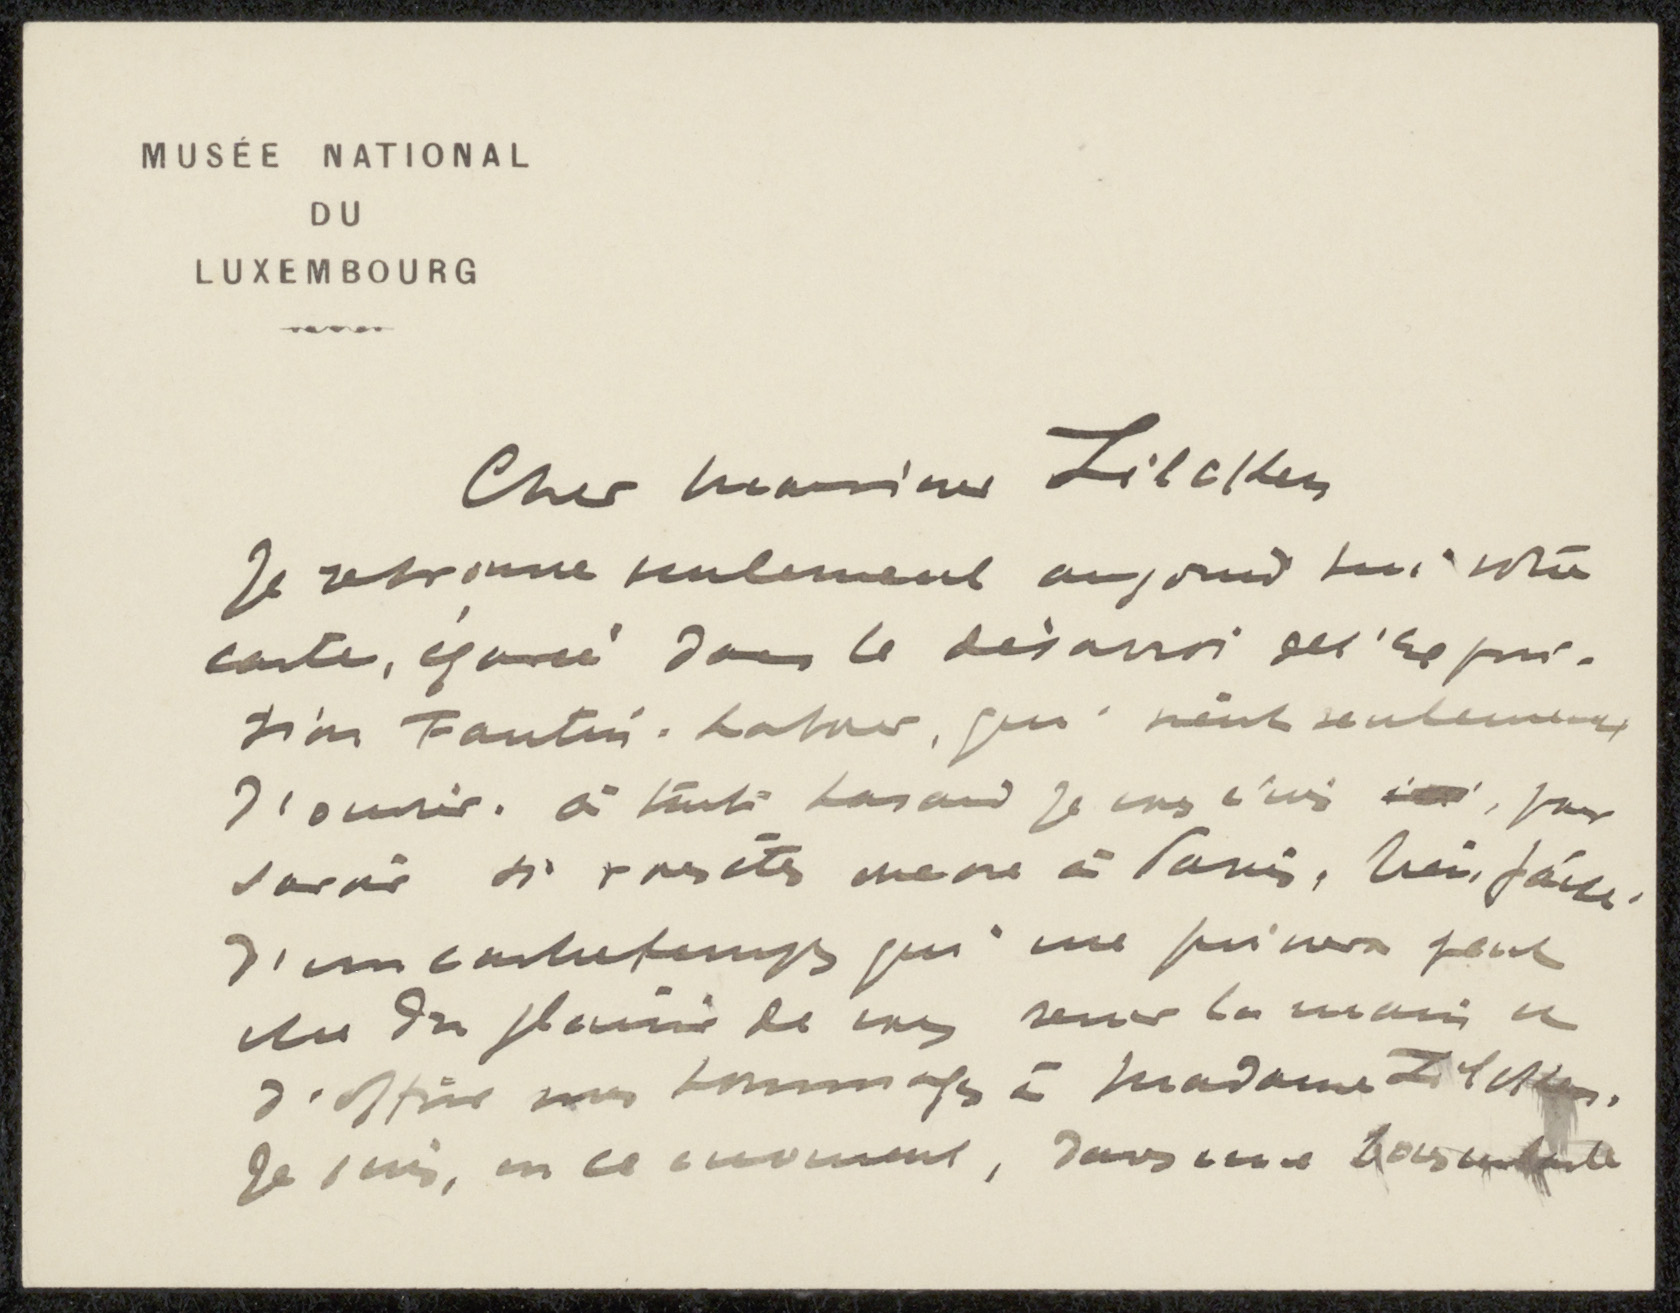 MUSÉE NATIONAL
DU
LUXEMBOURG
Cher Monsieur Zilcken
Je retrouve seulement aujourd'hui votre
carte, égarée dans le désarroi de l'Exposi-
tion Fantin-Latour, qui vient seulement
d'ouvrir. à tout hasard je vous écris, pour
savoir si vous êtes encore à Paris, bien fâché
d'un contretemps qui me privera peut
être du plaisir de vous serrer la main et
d'offrir mes hommages à Madame Zilcken.
Je suis, en ce moment, dans une bousculade